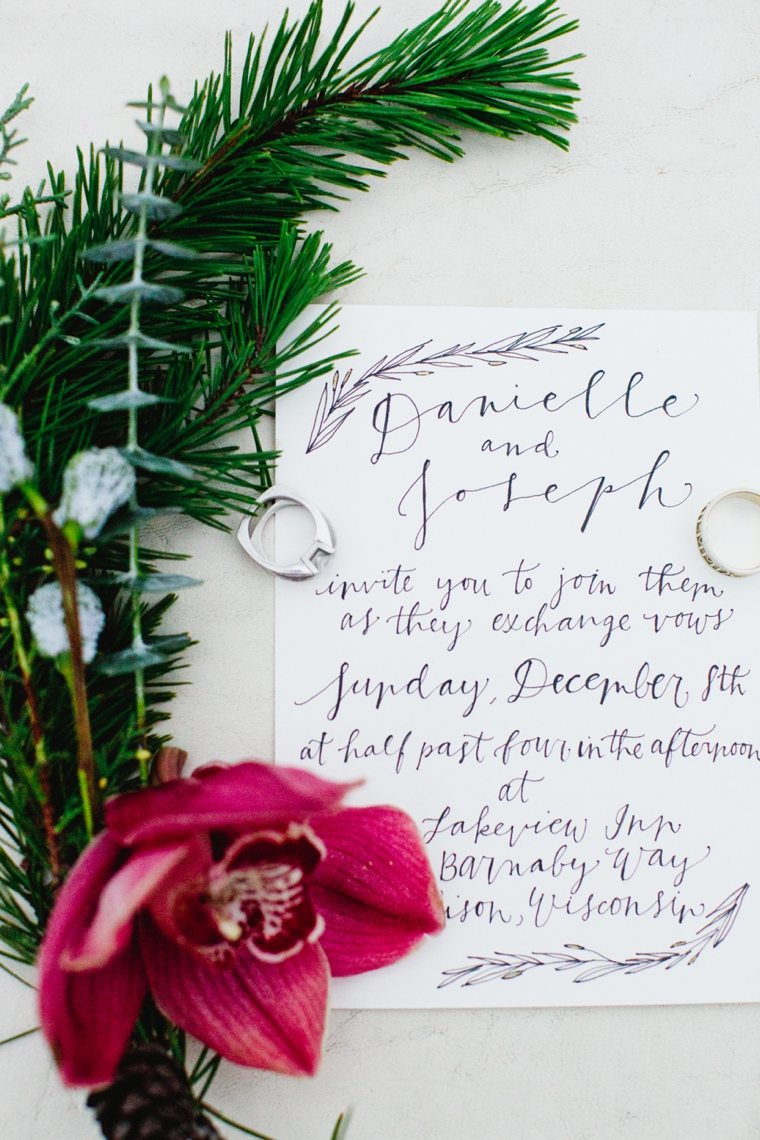 Danielle
and
Joseph
invite you to join them
as they exchange vows
Sunday, December 8th
at half past four in the afternoon
at
Lakeview Inn
Barnaby Way
Wisconsin